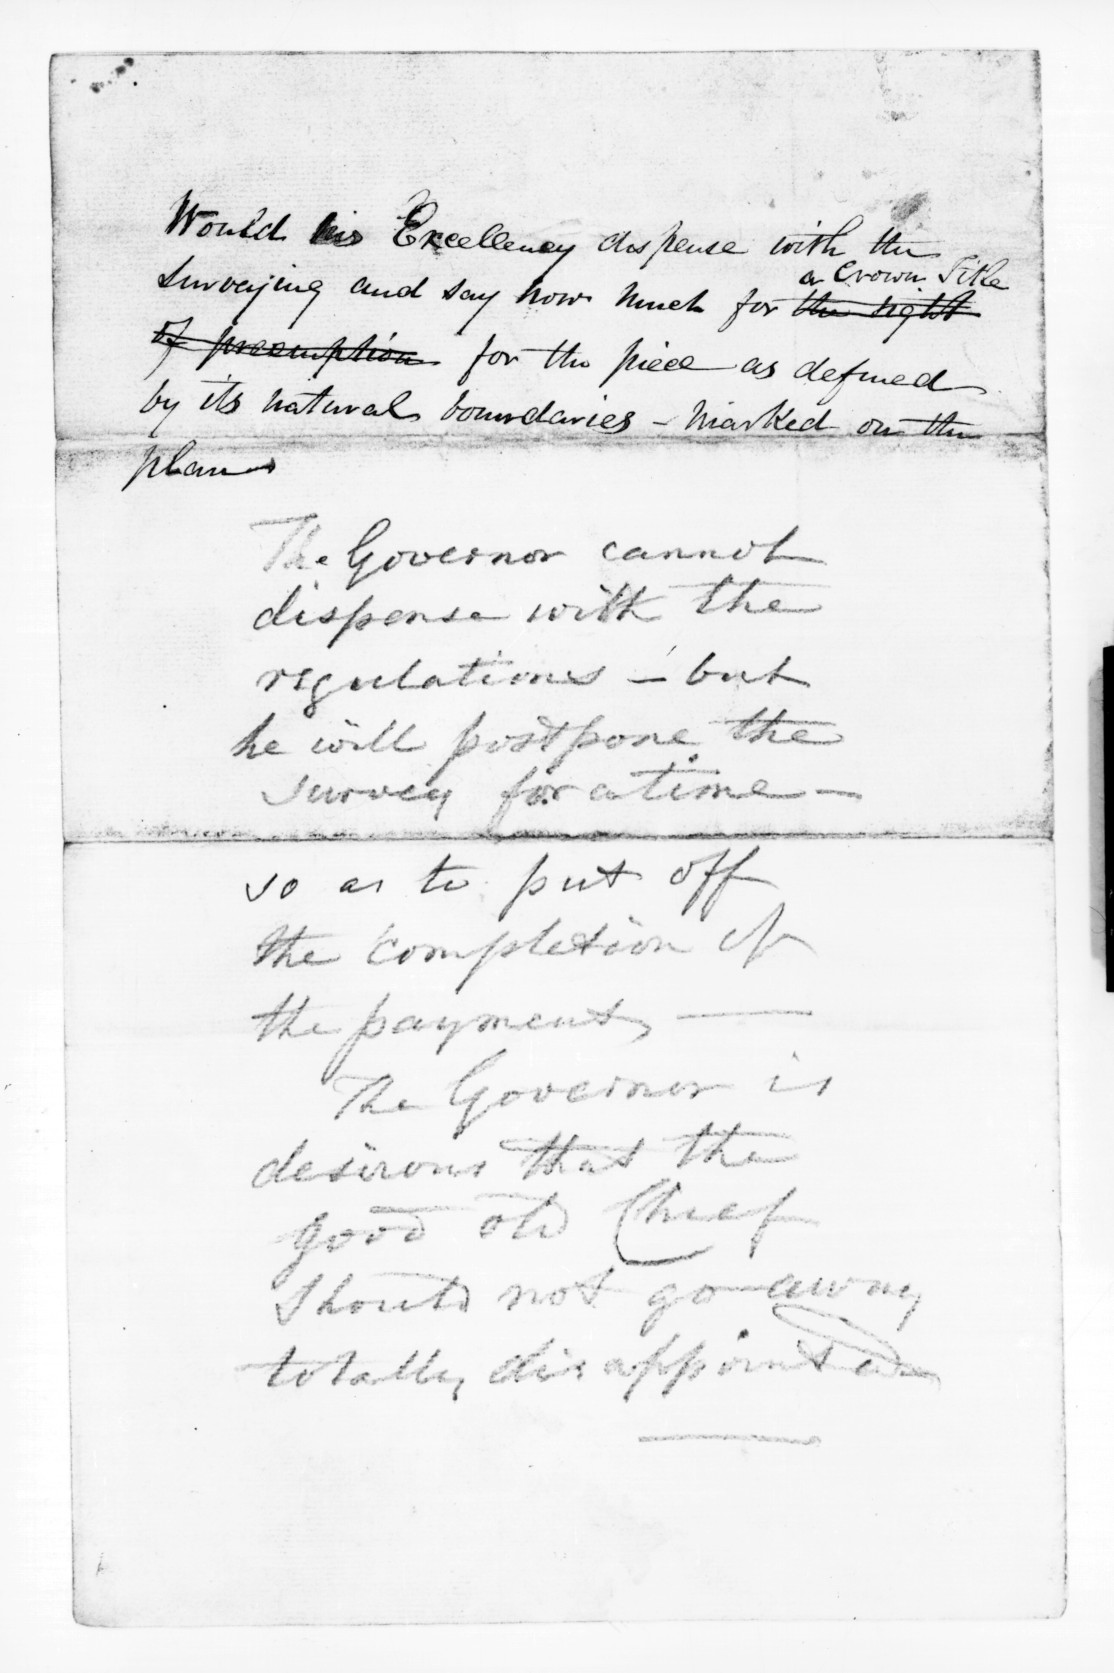 Would his Excellency dispense with the
surveying and say how much for ~~the right~~ a Crown Title
~~of preemption~~ for the piece as defined
by its natural boundaries - marked on the
plan
The Governor cannot
dispense with the
regulations - but
he will postpone the
survey for a time -
so as to put off
the completion of
the payments, —
The Governor is
desirous that the
good old Chief
should not go away
totally disappointed